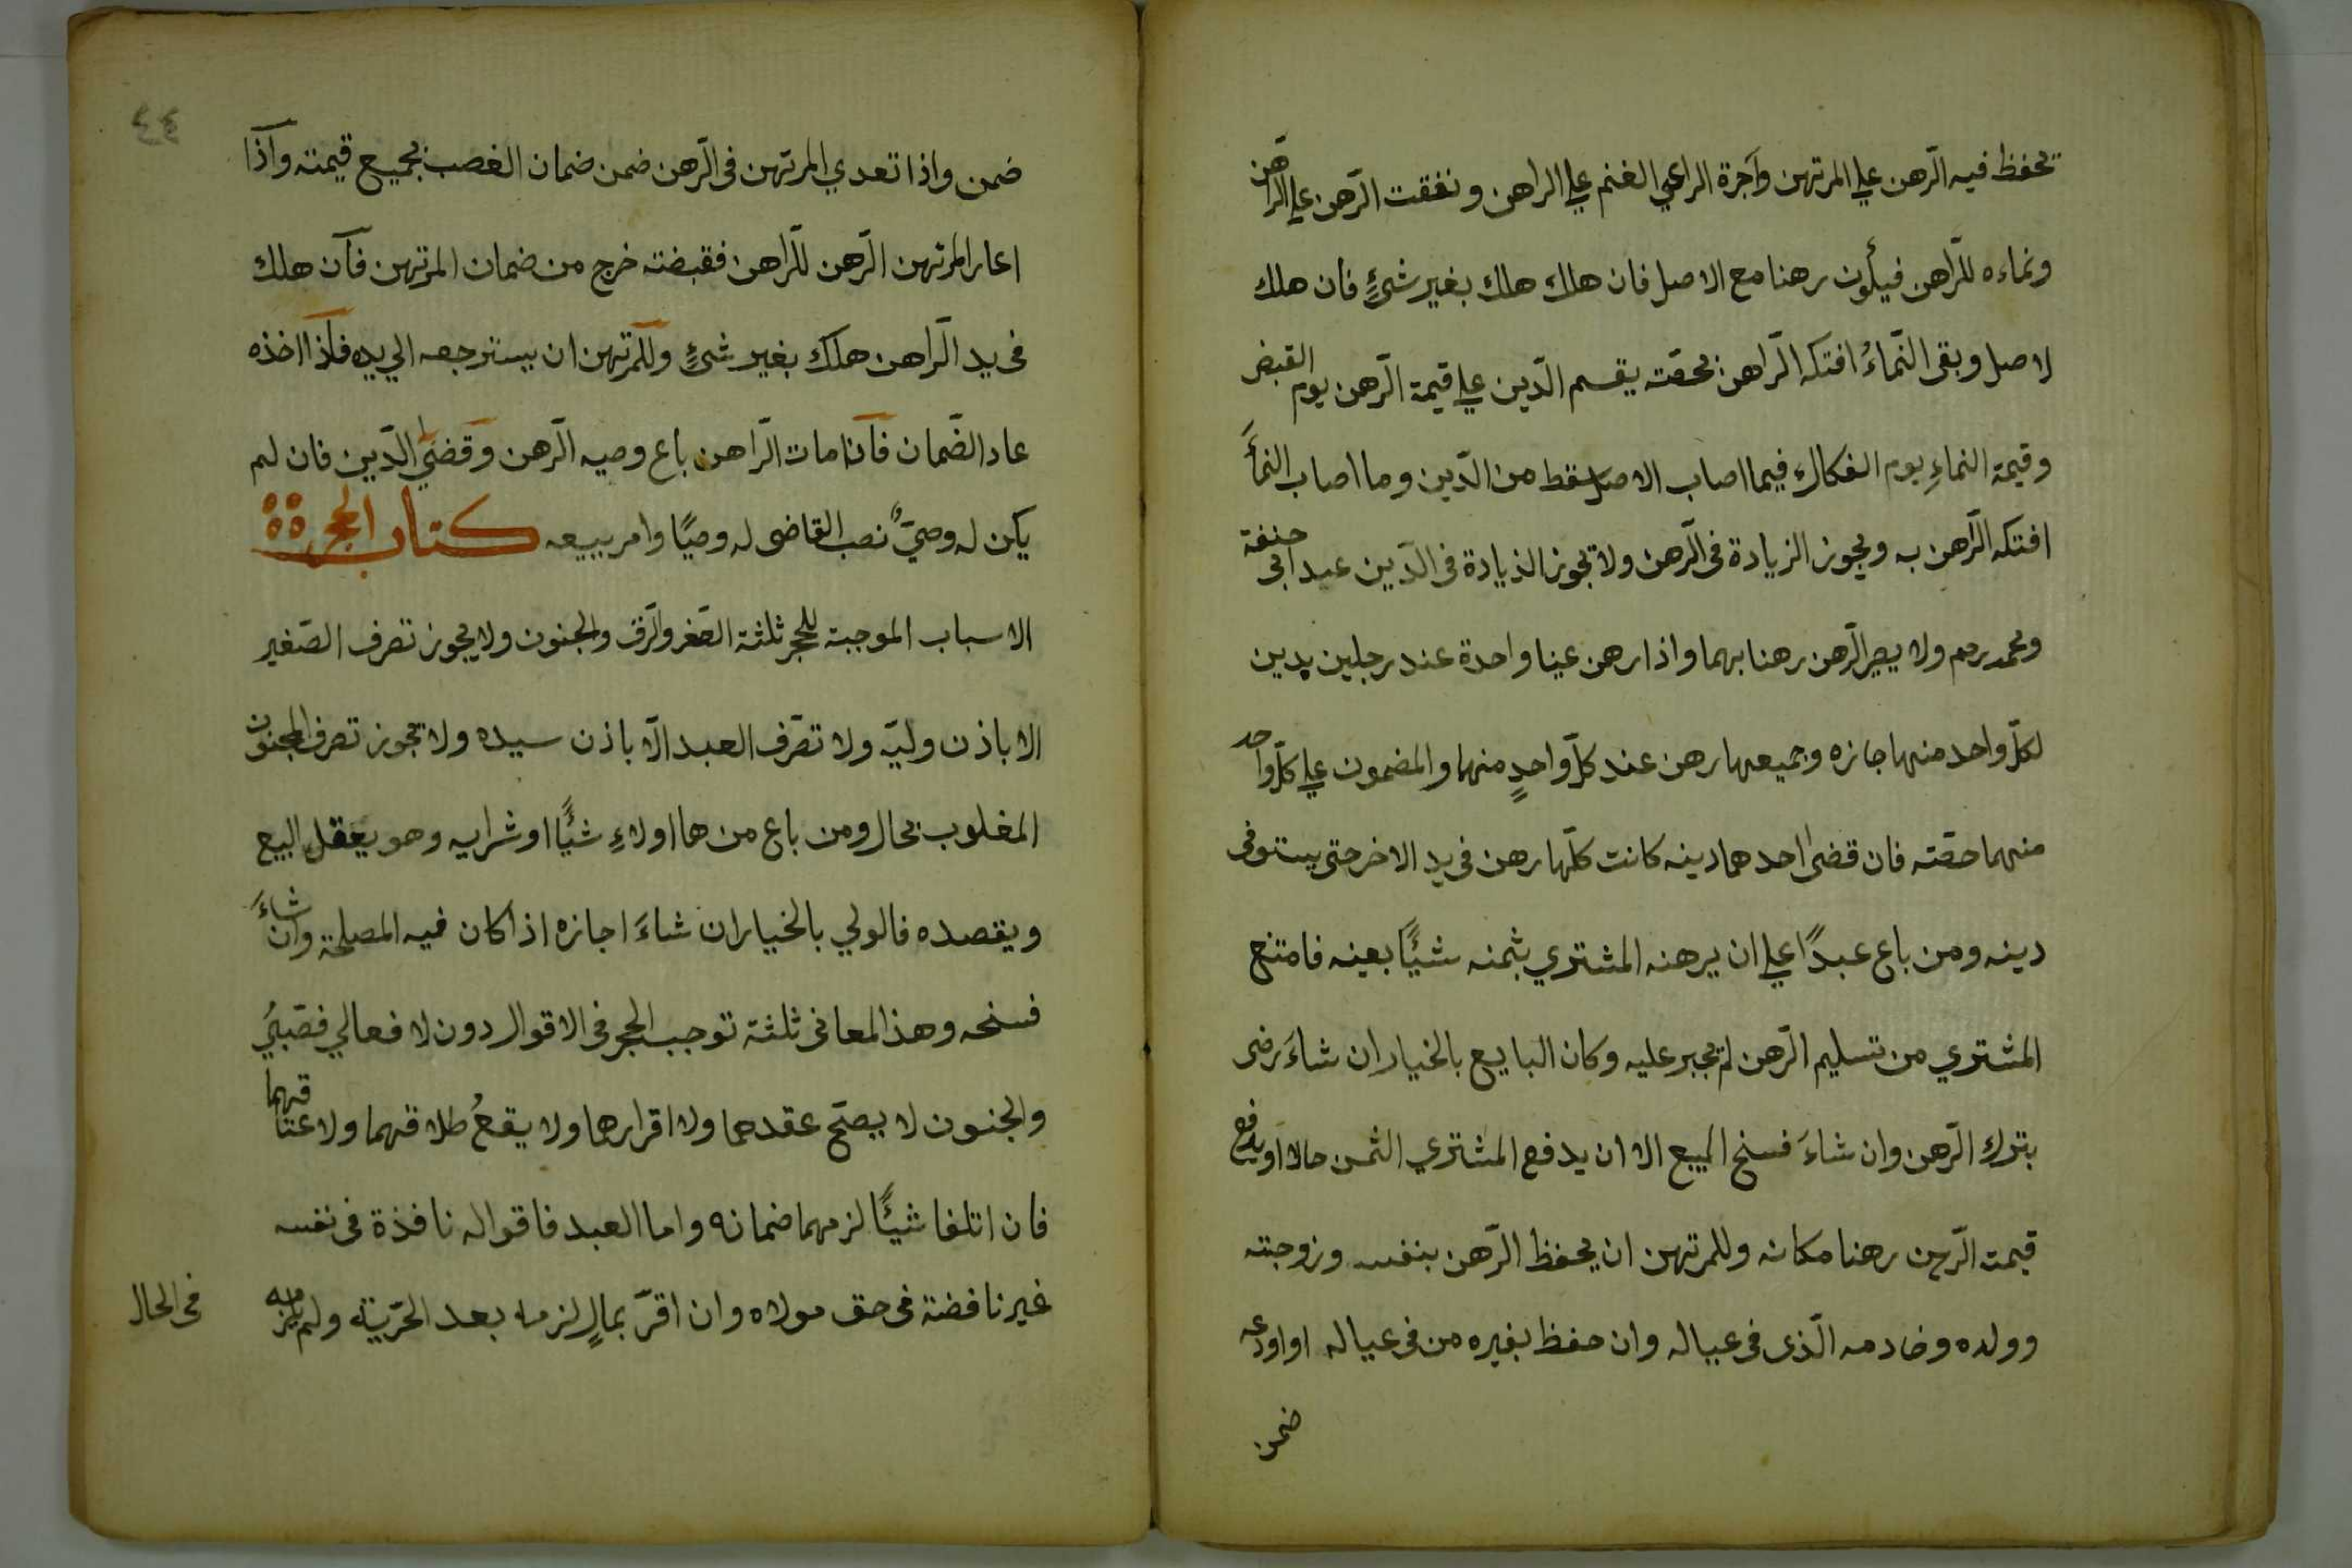 تحفظ فيه الرّهن علي المرتهن وآجرة الراعي الغنم علي الراهن ونفقت الرّهن علي الرّاهن
ونماءه للرّاهن فيكون رهنا مع الاصل فان هلك هلك بغير شئٍ فان هلك
لاصل وبقى النّماءُ افتكه الرّاهن بحصّته يقسم الدّين علي قيمة الرّهن يوم القبض
وقيمة النماءِ يوم الفكاك فيما اصاب الاصل سقط من الدّين وما اصاب النمأَ
افتكه الرّاهن به ويجوز الزيادة فى الرّهن ولا تجوز الزيادة فى الدّين عند ابى حنفة
ومحمد رحم ولا يصير الرّهن رهنا بهما واذا رهن عينا واحدة عند رجلين بدين
لكلّ واحد منهما جازه وجميعها رهن عند كلّ واحدٍ منهما والمضمون علي كلّ واحد
منهما حصّته فان قضى احدهما دينه كانت كلّها رهن فى يد الاخر حتى يستوفى
دينه ومن باع عبدًا علي ان يرهنه المشتري بثمنه شيئًا بعينه فامتنع
المشتري من تسليم الرّهن لم يجبر عليه وكان البايع بالخيار ان شاءَ رضى
بترك الرّهن وان شاءَ فسخ البيع الا ان يدفع المشتري الثمن حالا او يدفع
قيمة الرّهن رهنا مكانه وللمرتهن ان يحفظ الرّهن بنفسه وزوجته
وولده وخادمه الّذى فى عياله وان حفظ بغيره من فى عياله او اودعه
ضمن
٤٤
ضمن واذا تعدي المرتهن فى الرّهن ضمن ضمان الغصب بجميع قيمته وآذا
اعار المرتهن الرّهن للرّاهن فقبضته خرج من ضمان المرتهن فآن هلك
فى يد الرّاهن هلك بغير شئٍ وللمرتهن ان يسترجعه الي يده فآذا اخذه
عاد الضّمان فآذا مات الرّاهن باع وصيه الرّهن وقضي الدّين فان لم
يكن له وصيٌّ نصب القاضى له وصيًا وامر ببيعه كتاب الحجر
الاسباب الموجبة للحجر ثلثة الصّغر والرّق والجنون ولا يجوز تصرف الصّغير
الا باذن وليّه ولا تصّرف العبد الّا باذن سيده ولا تجوز تصرف المجنون
المغلوب بحال ومن باع من هااولاءِ شيئًا او شرايه وهو يعقل البيع
ويقصده فالولي بالخيار ان شاءَ اجازه اذا كان فيه المصلحة وان شاءَ
فسخه وهذ المعانى ثلثة توجب الحجر فى الاقوال دون لا فعالي فصّبيُ
والجنون لا يصحّ عقدهما ولا اقرارها ولا يقعُ طلاقهما ولا عتاقهما
فان اتلفا شيئًا لزمهما ضمانه واما العبد فاقواله نافذة فى نفسه
غير نافضة فى حق مولاه وان اقرّ بمالٍ لزمه بعد الحرّية ولم يلزمه
فى الحال